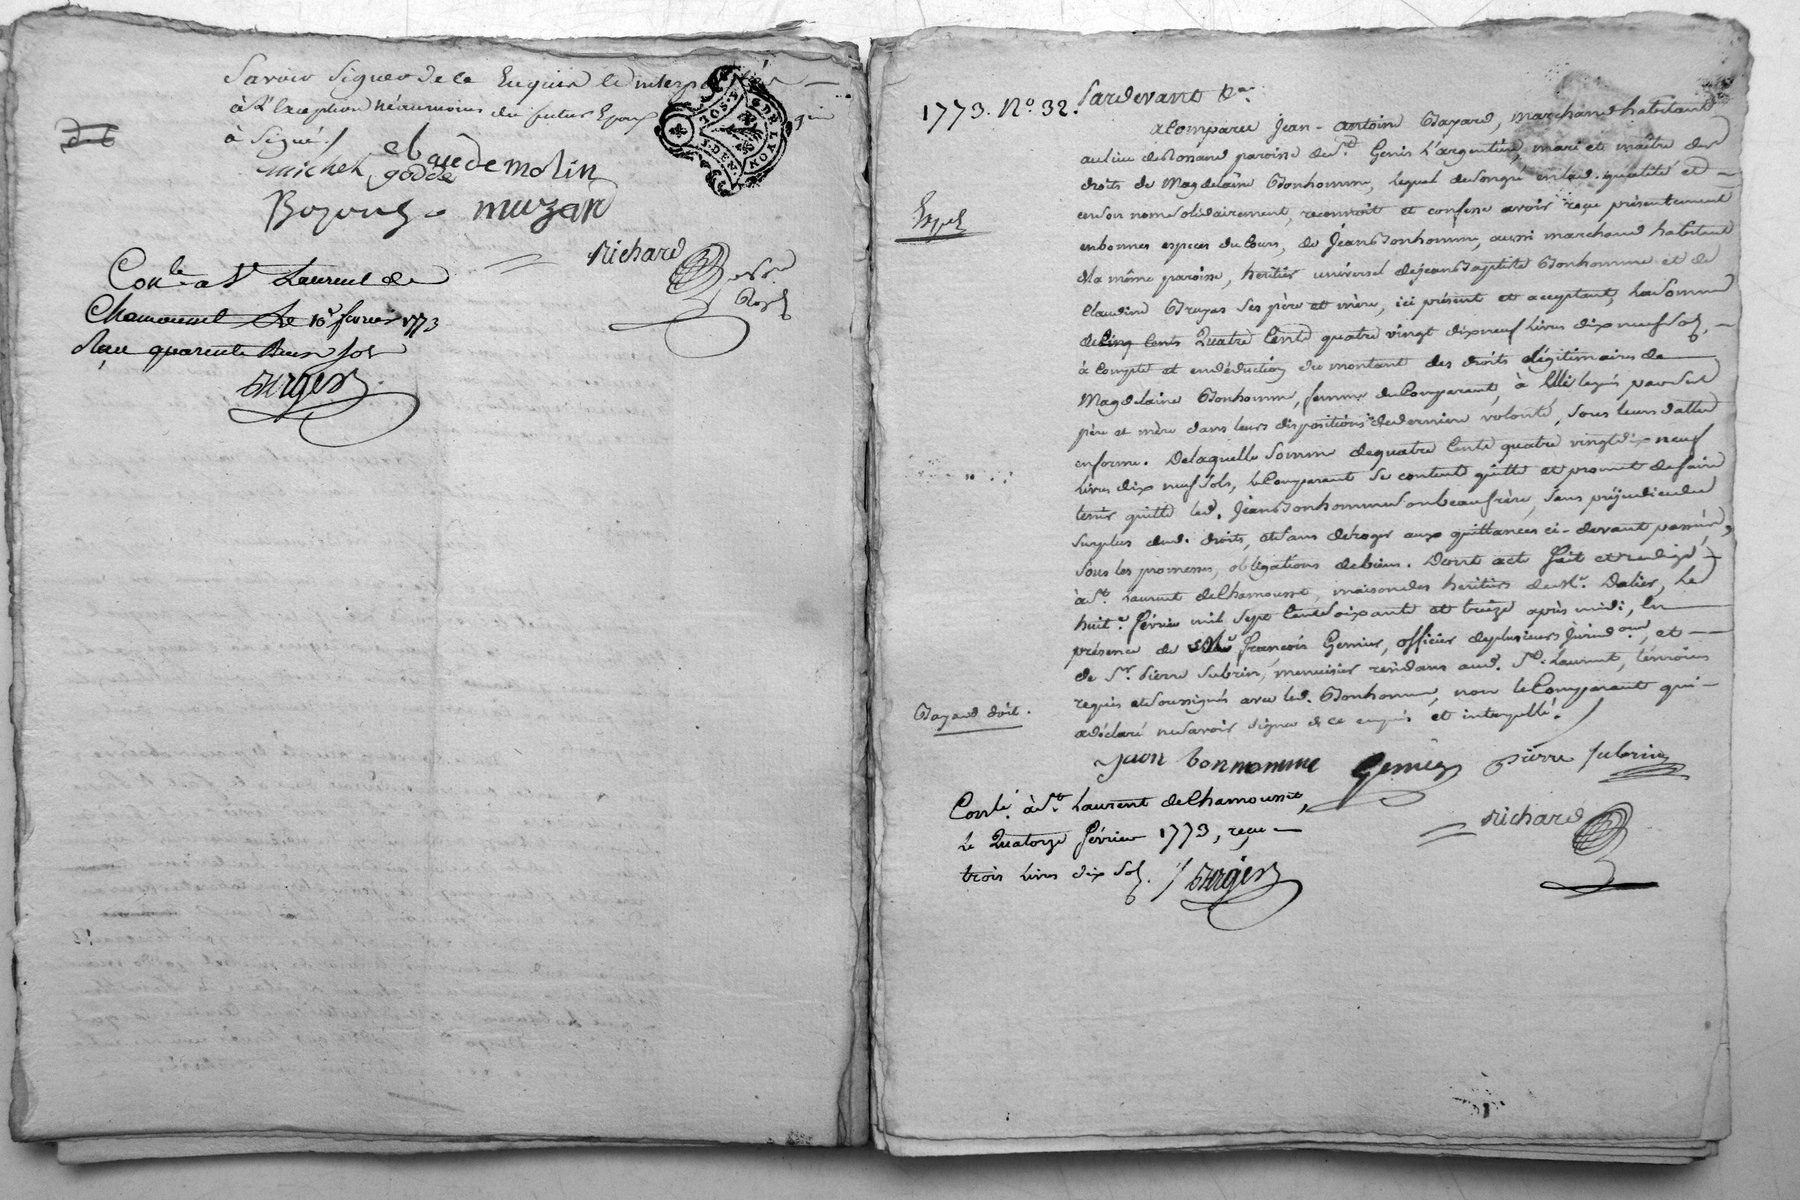 Savoir Signer de ce Enquis et interp
à L'exception néanmoins du futur Epoux qui
à Signé./
michel godde
claude molin
Bojout muzard
Richard
Con.lé a St Laurent de
Chamousset Le 16 fevrier 1773
Reçu quarente Deux sols
1773. N.º 32.
Pardevant &a.
a Comparu Jean-antoine Bayard, marchand habitant
au lieu de Rossand paroisse de St. Genis L'argentière, mari et maître des
droits de Magdelaine Bonhomme, lequel de son gré en lad. qualité et
en son nom solidairement, reconnoît et confesse avoir reçu présentement
en bonnes especes du Cours, de Jean Bonhomme, aussi marchand habitant
d la même paroisse, heritier universel de jean Baptiste Bonhomme et de
Claudine Bruyas ses père et mère, ici présent et acceptant, La Somme
de Cinq Cents Quatre Cents quatre vingt dix neuf Livres dix neuf Sols,
à compte et en déduction du montant des droits Légitimaires de
Magdelaine Bonhomme, femme du Comparant, à Elle legués par Sed.
père et mère dans leurs dispositions de derniere volonté, Sous leurs dattes
en forme. De laquelle Somme de quatre Cents quatre vingt dix neuf
Livres dix neuf Sols, le Comparant Se content quitte et promet de faire
tenir quitte led. Jean Bonhomme Son beaufrère, Sans préjudice du
Surplus desd. droits, et Sans déroger aux quittances ci-devant passées,
Sous les promesses, obligations de biens. Dont acte fait et rédigé
à St. Laurent de Chamousset, maison des heritiers de Mr. Dalier, Le
huit.e fevrier mil Sept Cent Soixante et treize après midi, En
présence de Me François Gemier, officier de plusieurs Jurid.ons, et
de Sr. Pierre Subrin, menuisier residans aud. St. Laurent, témoins
requis et Soussignés avec led. Bonhomme, non le Comparant qui
a déclaré ne Savoir Signer de ce enquis et interpellé./
Bayard doit.
Jean bonnomme Gemier pierre subrin
Richard
Conlé. à St. Laurent de Chamousset,
le Quatorze février 1773, reçu
trois Livres dix Sols.